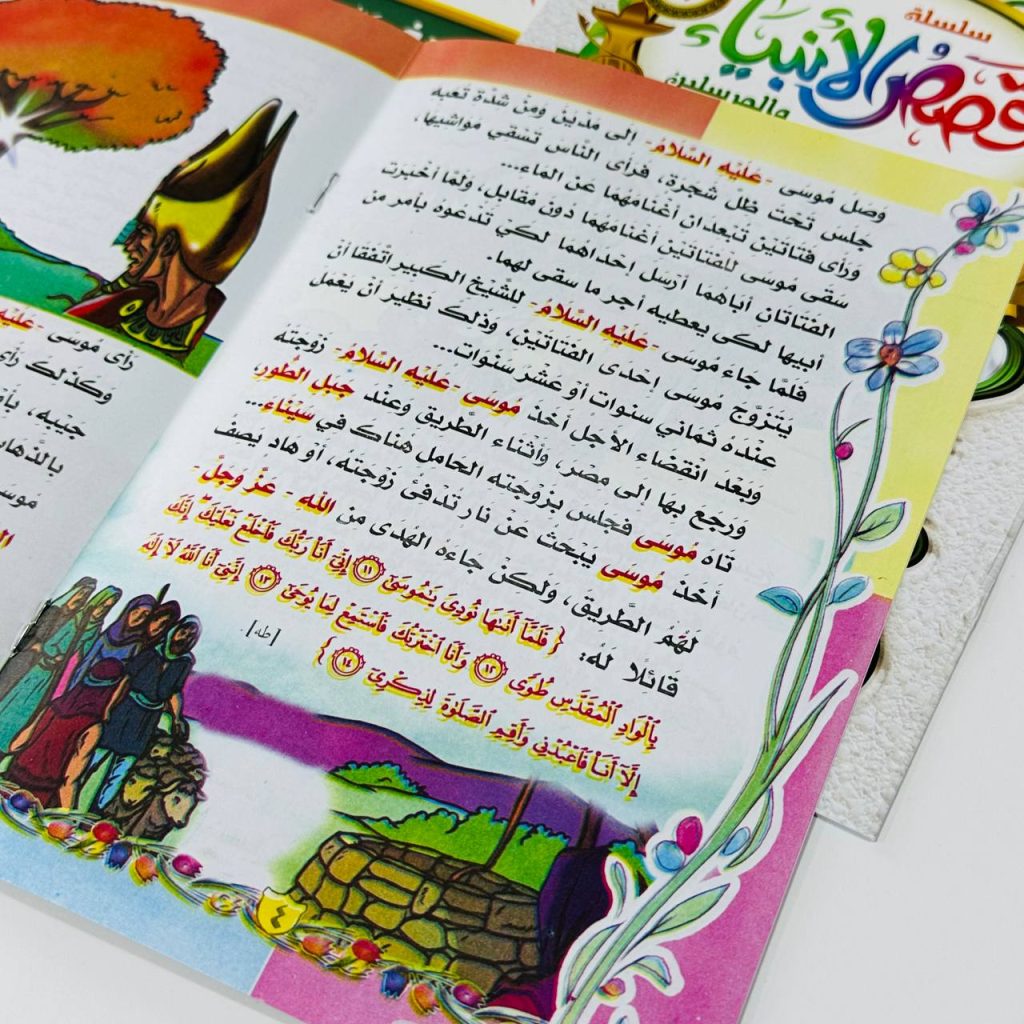 سلسلة
قصص الأنبياء
والمرسلين
وصل مُوسَى -عَلَيْهِ السَّلامُ- إلى مَدْيَنَ ومِنْ شدَّة تَعَبه
جلس تَحْتَ ظلِّ شجرة، فرأى النَّاسَ تَسْقي مَوَاشيها،
وَرَأى فتاتَيْن تُبْعدان أغْنامَهُما عن المَاء...
سَقَى مُوسى للفَتاتَيْن أغْنامَهُما دُونَ مُقابل، ولمَّا أخْبَرت
الفَتاتَان أباهُما أرْسل إحْداهُما لكَيْ تَدْعُوه بأمر من
أبيها لكى يعطيه أجر ما سقى لهما.
فلَمَّا جاءَ مُوسَى -عَلَيْهِ السَّلامُ- للشَّيْخ الكبير اتَّفَقا أنْ
يتزوَّج مُوسى إحْدى الفَتاتَيْن، وذلكَ نَظيرَ أنْ يَعْمل
عنْدهُ ثماني سنوات أوْ عشْرَ سَنَوات...
وبَعْد انْقضاء الأجل أخَذَ مُوسَى -عَلَيْهِ السَّلامُ- زوْجتهُ
ورجع بها إلى مصْرَ، وأثْناء الطَّريق وعنْد جبَل الطُّور،
تَاهَ مُوسَى فجلس بزوْجته الحَامل هناكَ في سيْنَاء...
أخَذَ مُوسَى يبْحثُ عنْ نار تدْفئُ زوْجتهُ، أو هاد يَصفُ
لهُمُ الطَّريقَ، ولكنْ جَاءَه الهُدى منَ الله - عَزَّ وَجَلَّ -
قائلًا لهُ: {فَلَمَّآ أَتَىٰهَا نُودِىَ يَٰمُوسَىٰٓ ۝١١ إِنِّىٓ أَنَا۠ رَبُّكَ فَٱخْلَعْ نَعْلَيْكَ إِنَّكَ
بِٱلْوَادِ ٱلْمُقَدَّسِ طُوًى ۝١٢ وَأَنَا ٱخْتَرْتُكَ فَٱسْتَمِعْ لِمَا يُوحَىٰٓ ۝١٣ إِنَّنِىٓ أَنَا ٱللَّهُ لَآ إِلَٰهَ
إِلَّآ أَنَا۠ فَٱعْبُدْنِى وَأَقِمِ ٱلصَّلَوٰةَ لِذِكْرِىٓ ۝١٤}
[طه].
٤
رأى مُوسَى -عَلَيْه
وكذلكَ رَأى
جَيْبه،
بالذَّهاب
مُوسَى